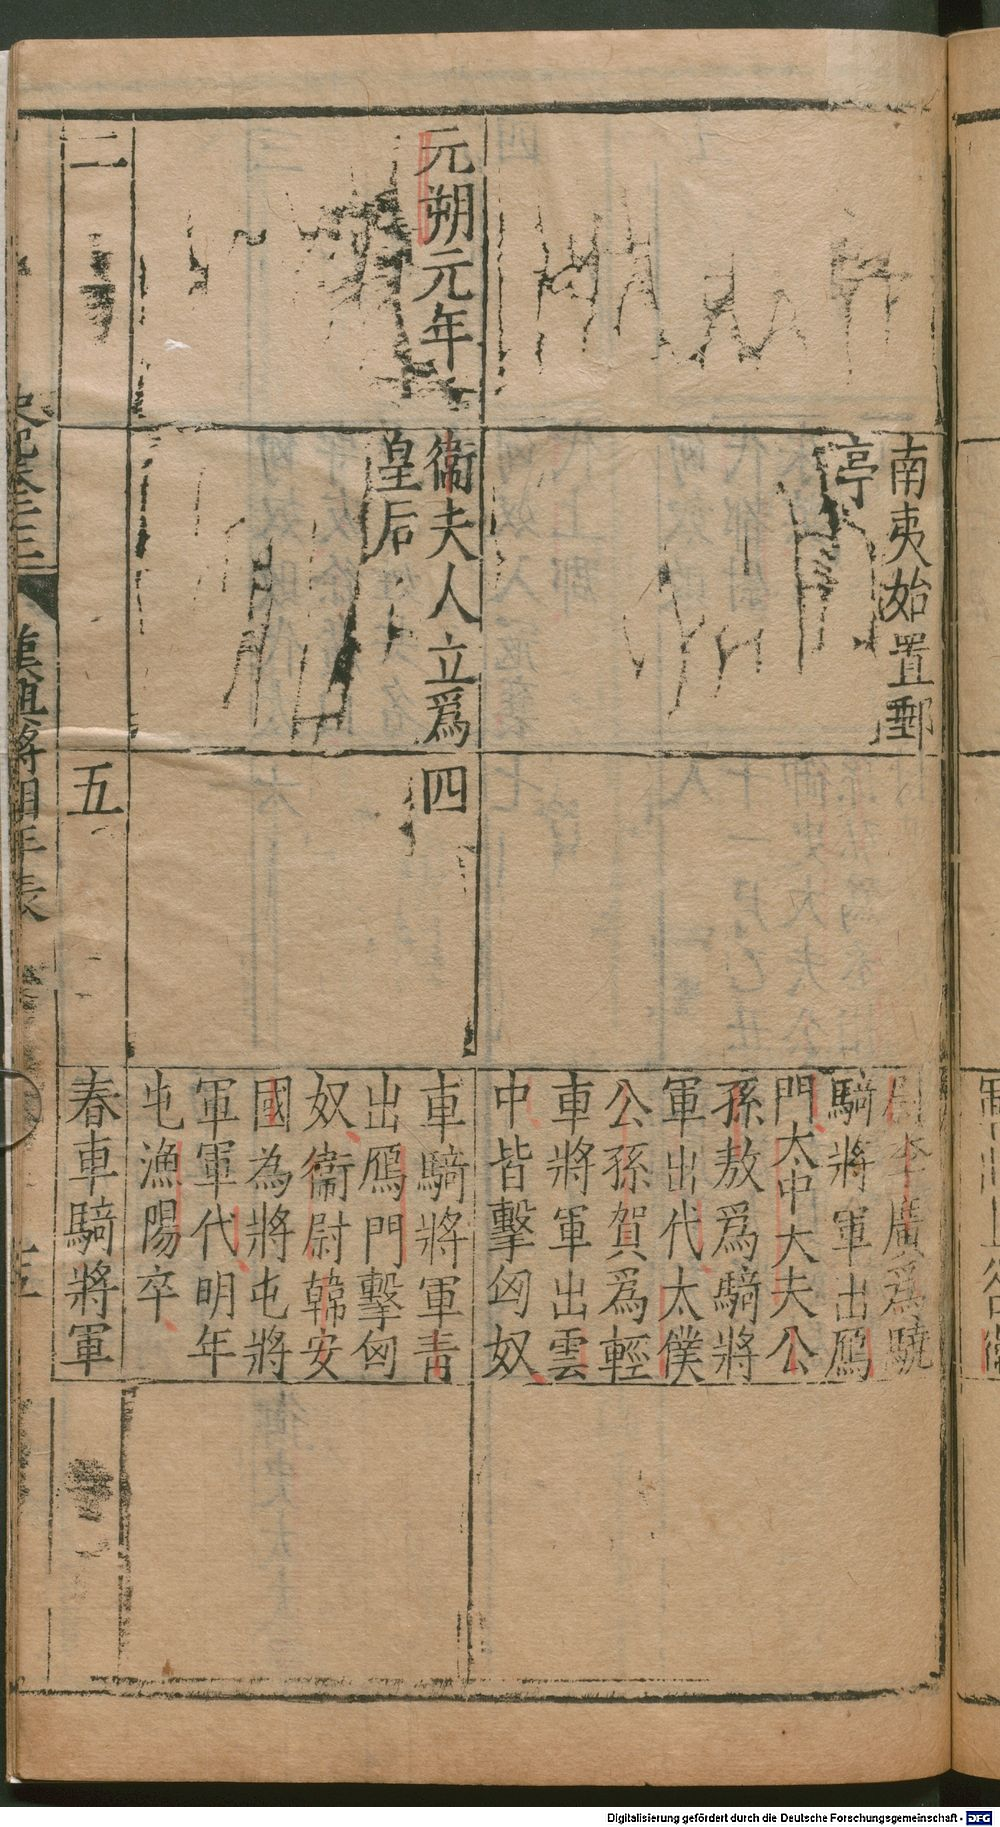 南夷始置郵
亭
尉李廣為驍
騎將軍出鴈
門大中大夫公
孫敖爲騎將
軍出代太僕
公孫賀爲輕
車將軍出雲
中皆擊匈奴
元朔元年
衞夫人立爲
皇后
四
車騎將軍青
出鴈門擊匈
奴衞尉韓安
國為將屯將
軍軍代明年
屯漁陽卒
二
五
春車騎將軍
漢興將相年表
Digitalisierung gefördert durch die Deutsche Forschungsgemeinschaft - DFG